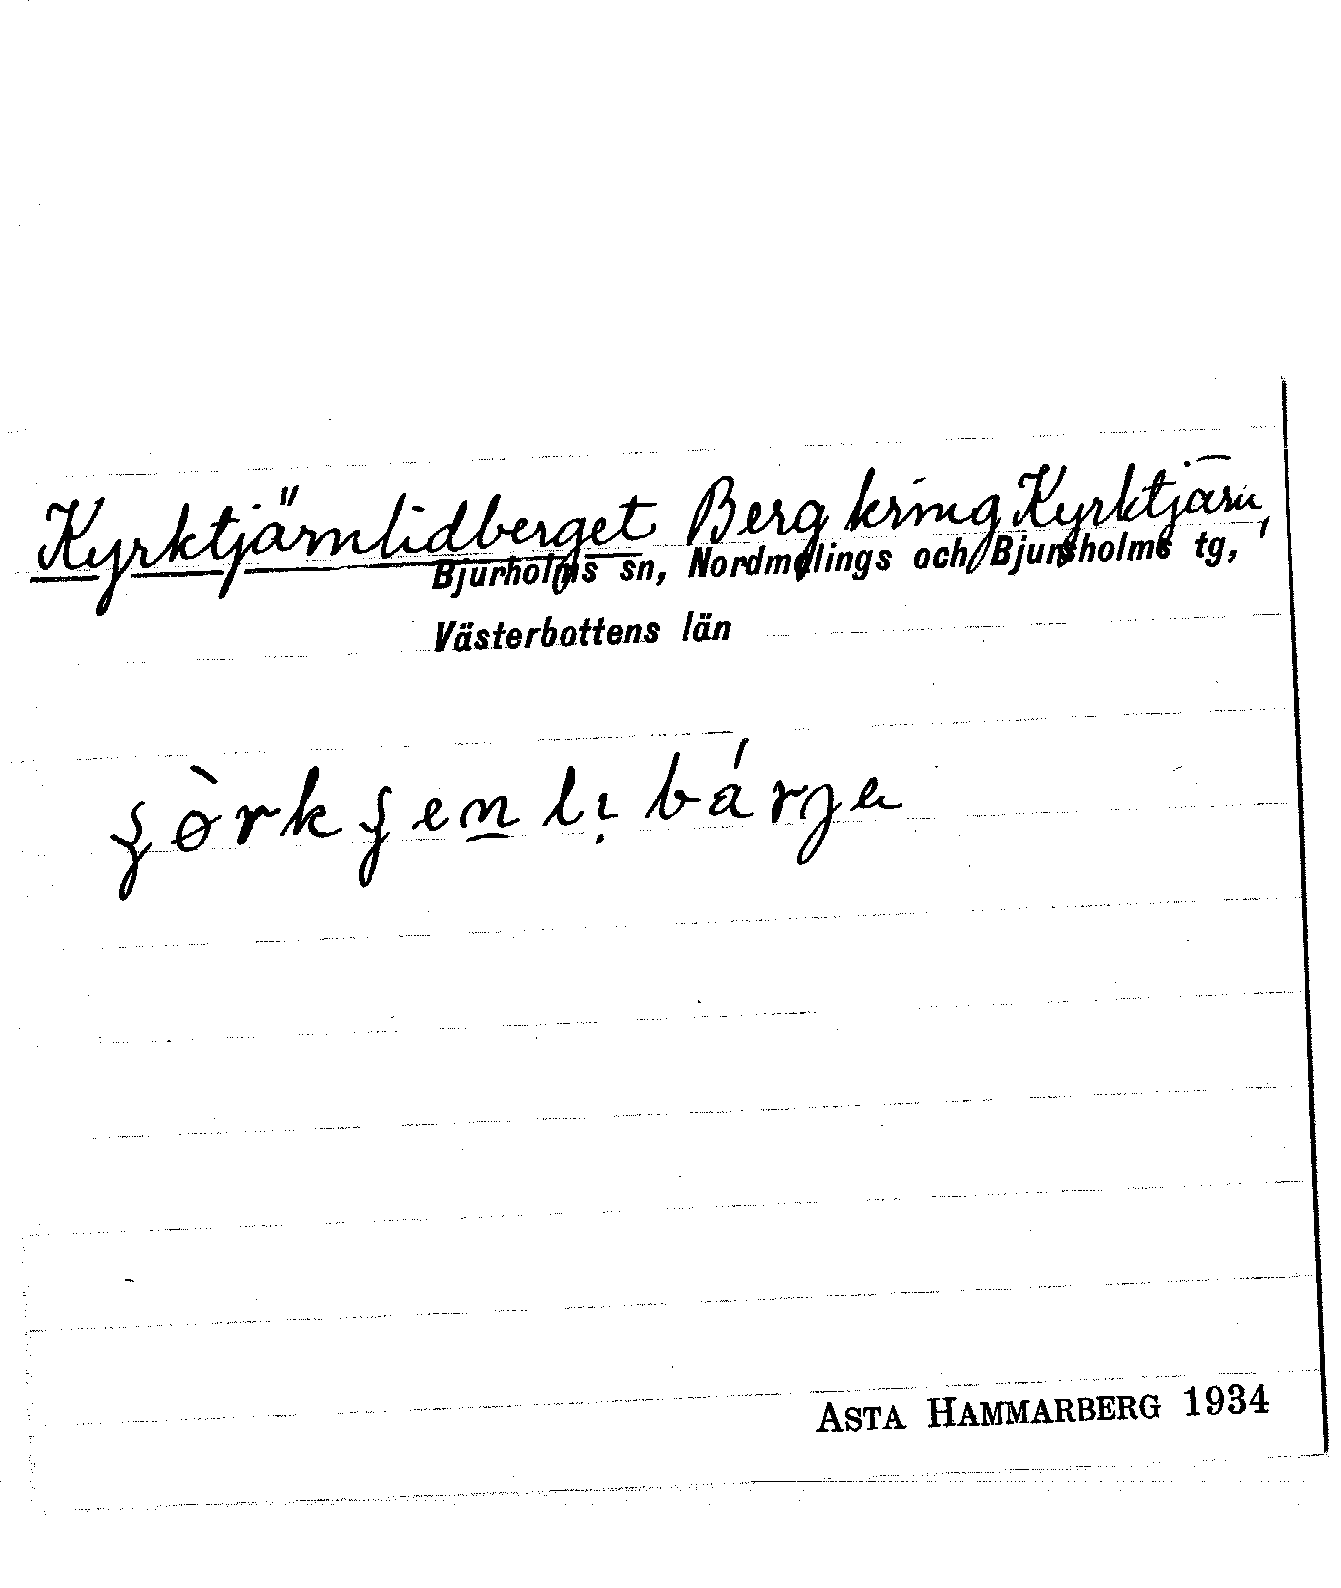 Kyrktjärnlidberget Berg kring Kyrktjärn,
Bjurholms sn, Nordmalings och Bjurholms tg,
Västerbottens län
ASTA HAMMARBERG 1934